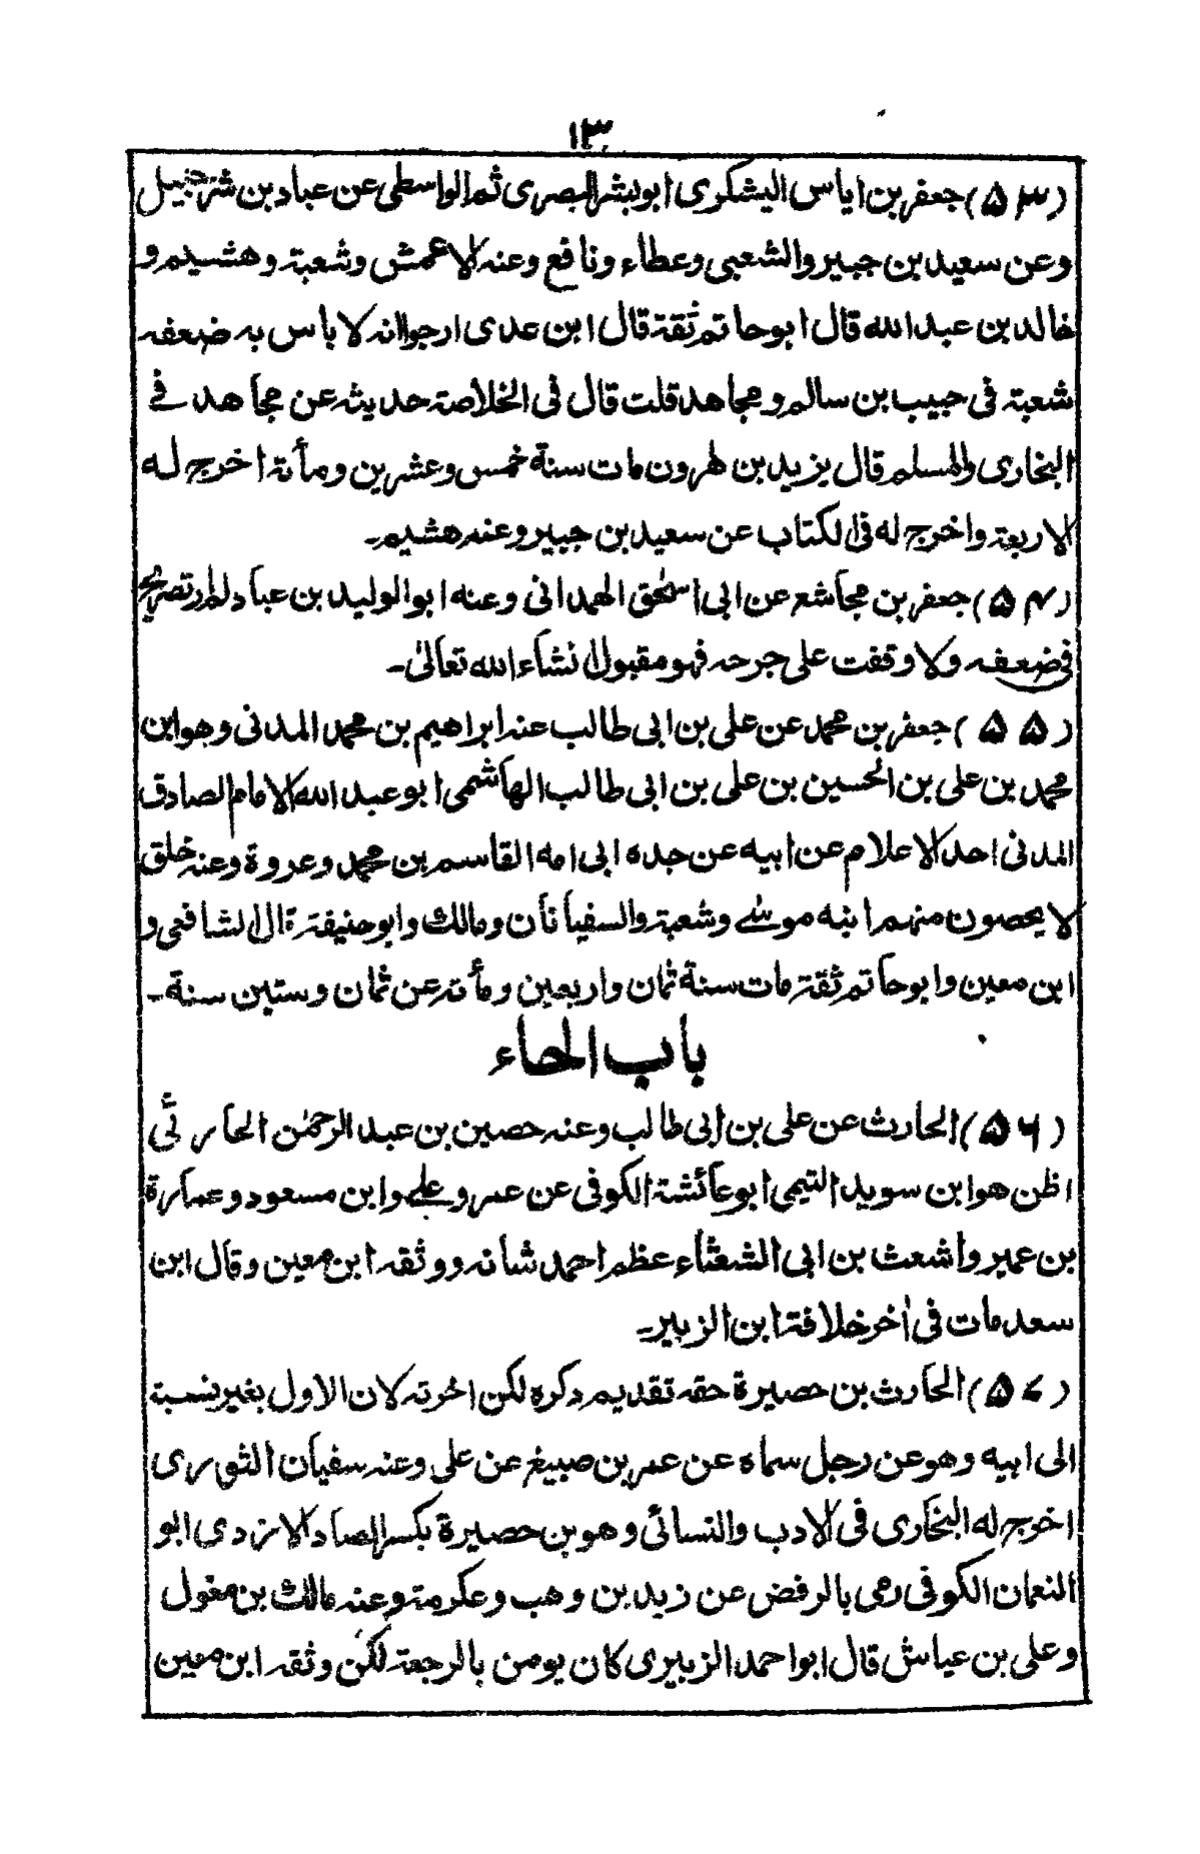 ۱۳
(۵۳) جعفر بن اياس اليشكرى ابو بشر البصرى ثم الواسطى عن عباد بن شرحبيل
وعن سعيد بن جبير والشعبى وعطاء ونافع وعنه الاعمش وشعبة وهشيم و
خالد بن عبد الله قال ابو حاتم ثقة قال ابن عدى ارجو انه لا باس به ضعفه
شعبة فى حبيب بن سالم ومجاهد قلت قال فى الخلاصة حديثه عن مجاهد فے
البخارى والمسلم قال يزيد بن هٰرون مات سنة خمس وعشرين ومأته اخرج له
الاربعة واخرج له فى الكتاب عن سعيد بن جبير وعنه هشيم۔
(۵۴) جعفر بن مجاشع عن ابى اسحٰق الهمدانى وعنه ابو الوليد بن عباد لم ار تصريح
فى ضعفه ولا وقفت على جرحه فهو مقبول ان شاء الله تعالىٰ۔
(۵۵) جعفر بن محمد عن على بن ابى طالب عنه ابراهيم بن محمد المدنى وهو ابن
محمد بن على بن الحسين بن على بن ابى طالب الهاشمى ابو عبد الله الامام الصادق
المدنى احد الاعلام عن ابيه عن جده ابى امه القاسم بن محمد وعروة وعنه خلق
لا يحصون منهم ابنه موسٰے وشعبة والسفيانان ومالك وابو حنيفة قال الشافعى و
ابن معين وابو حاتم ثقة مات سنة ثمان واربعين ومأته عن ثمان وستين سنة۔
باب الحاء
(۵۶) الحارث عن على بن ابى طالب وعنه حصين بن عبد الرحمٰن الحارثى
اظن هو ابن سويد التيمى ابو عائشة الكوفى عن عمر وعلے وابن مسعود وعمارة
بن عمير واشعث بن ابى الشعثاء عظم احمد شانه ووثقه ابن معين وقال ابن
سعد مات فى اٰخر خلافة ابن الزبير۔
(۵۷) الحارث بن حصيرة حقه تقديم ذكره لكن اخرته لان الاول بغير نسبة
الى ابيه وهو عن رجل سماه عن عمر بن صبيغ عن على وعنه سفيان الثورى
اخرج له البخارى فى الادب والنسائى وهو بن حصيرة بكسر الصاد الازدى ابو
النعمان الكوفى رمى بالرفض عن زيد بن وهب وعكرمة وعنه مالك بن مغول
وعلى بن عياش قال ابو احمد الزبيرى كان يومن بالرجعة لكن وثقه ابن معين